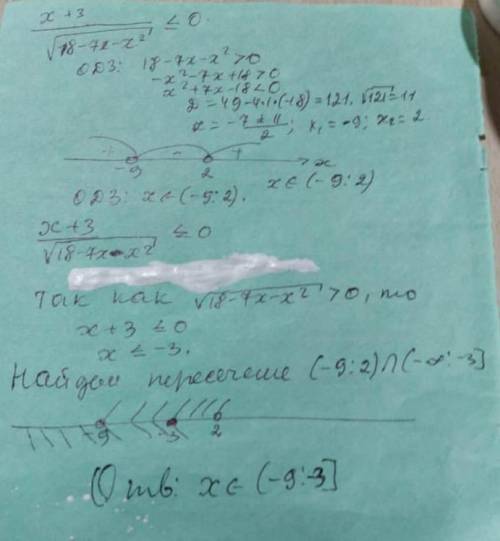 x+3 / √18-7x-x² ≤ 0.
ОДЗ: 18-7x-x²>0
-x²-7x+18>0
x²+7x-18<0
D=49-4·1·(-18)=121, √121=11
x= -7±11 / 2 ; x₁=-9; x₂=2
+ - + x
-9 2
x∈(-9:2)
ОДЗ: x∈(-9:2).
x+3 / √18-7x-x² ≤ 0
Так как √18-7x-x² >0, то
x+3 ≤ 0
x ≤ -3.
Найдем пересечение (-9:2)∩(-∞:-3]
-9 -3 2
Отв: x∈(-9:-3]